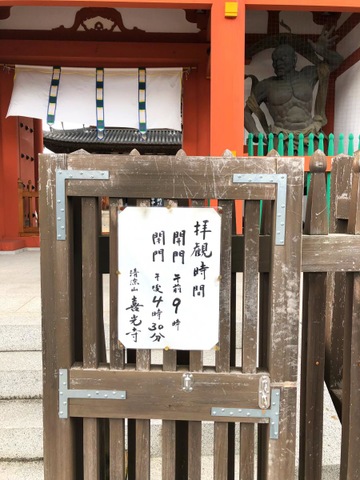 拝観時間
開門 午前9時
閉門 午後4時30分
清涼山 喜光寺